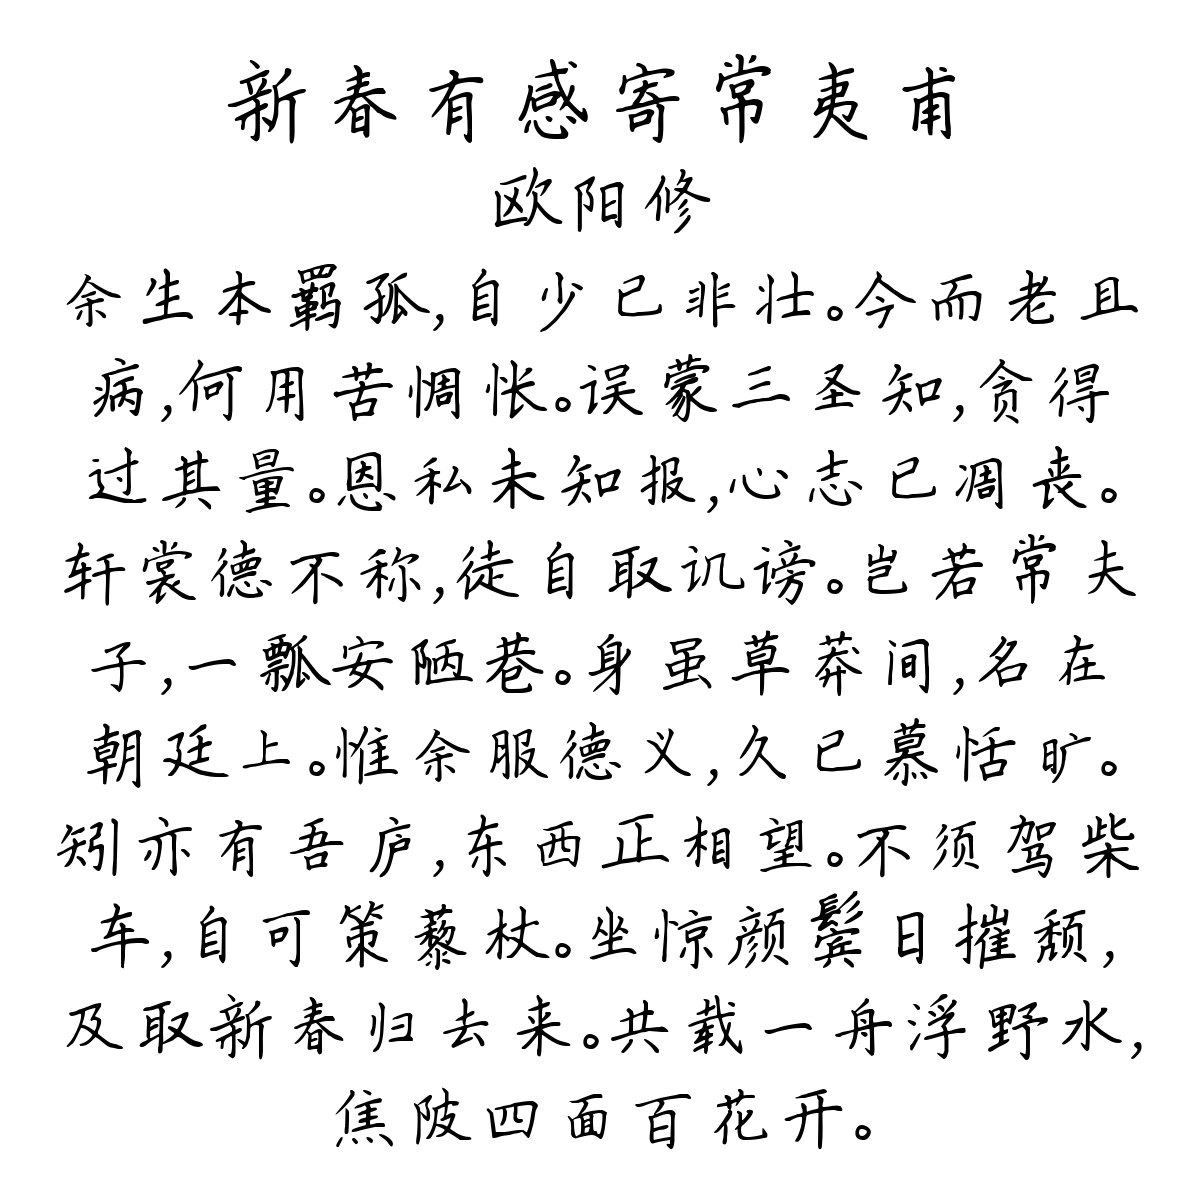 新春有感寄常夷甫
欧阳修
余生本羁孤,自少已非壮。今而老且
病,何用苦惆怅。误蒙三圣知,贪得
过其量。恩私未知报,心志已凋丧。
轩裳德不称,徒自取讥谤。岂若常夫
子,一瓢安陋巷。身虽草莽间,名在
朝廷上。惟余服德义,久已慕恬旷。
矧亦有吾庐,东西正相望。不须驾柴
车,自可策藜杖。坐惊颜鬓日摧颓,
及取新春归去来。共载一舟浮野水,
焦陂四面百花开。